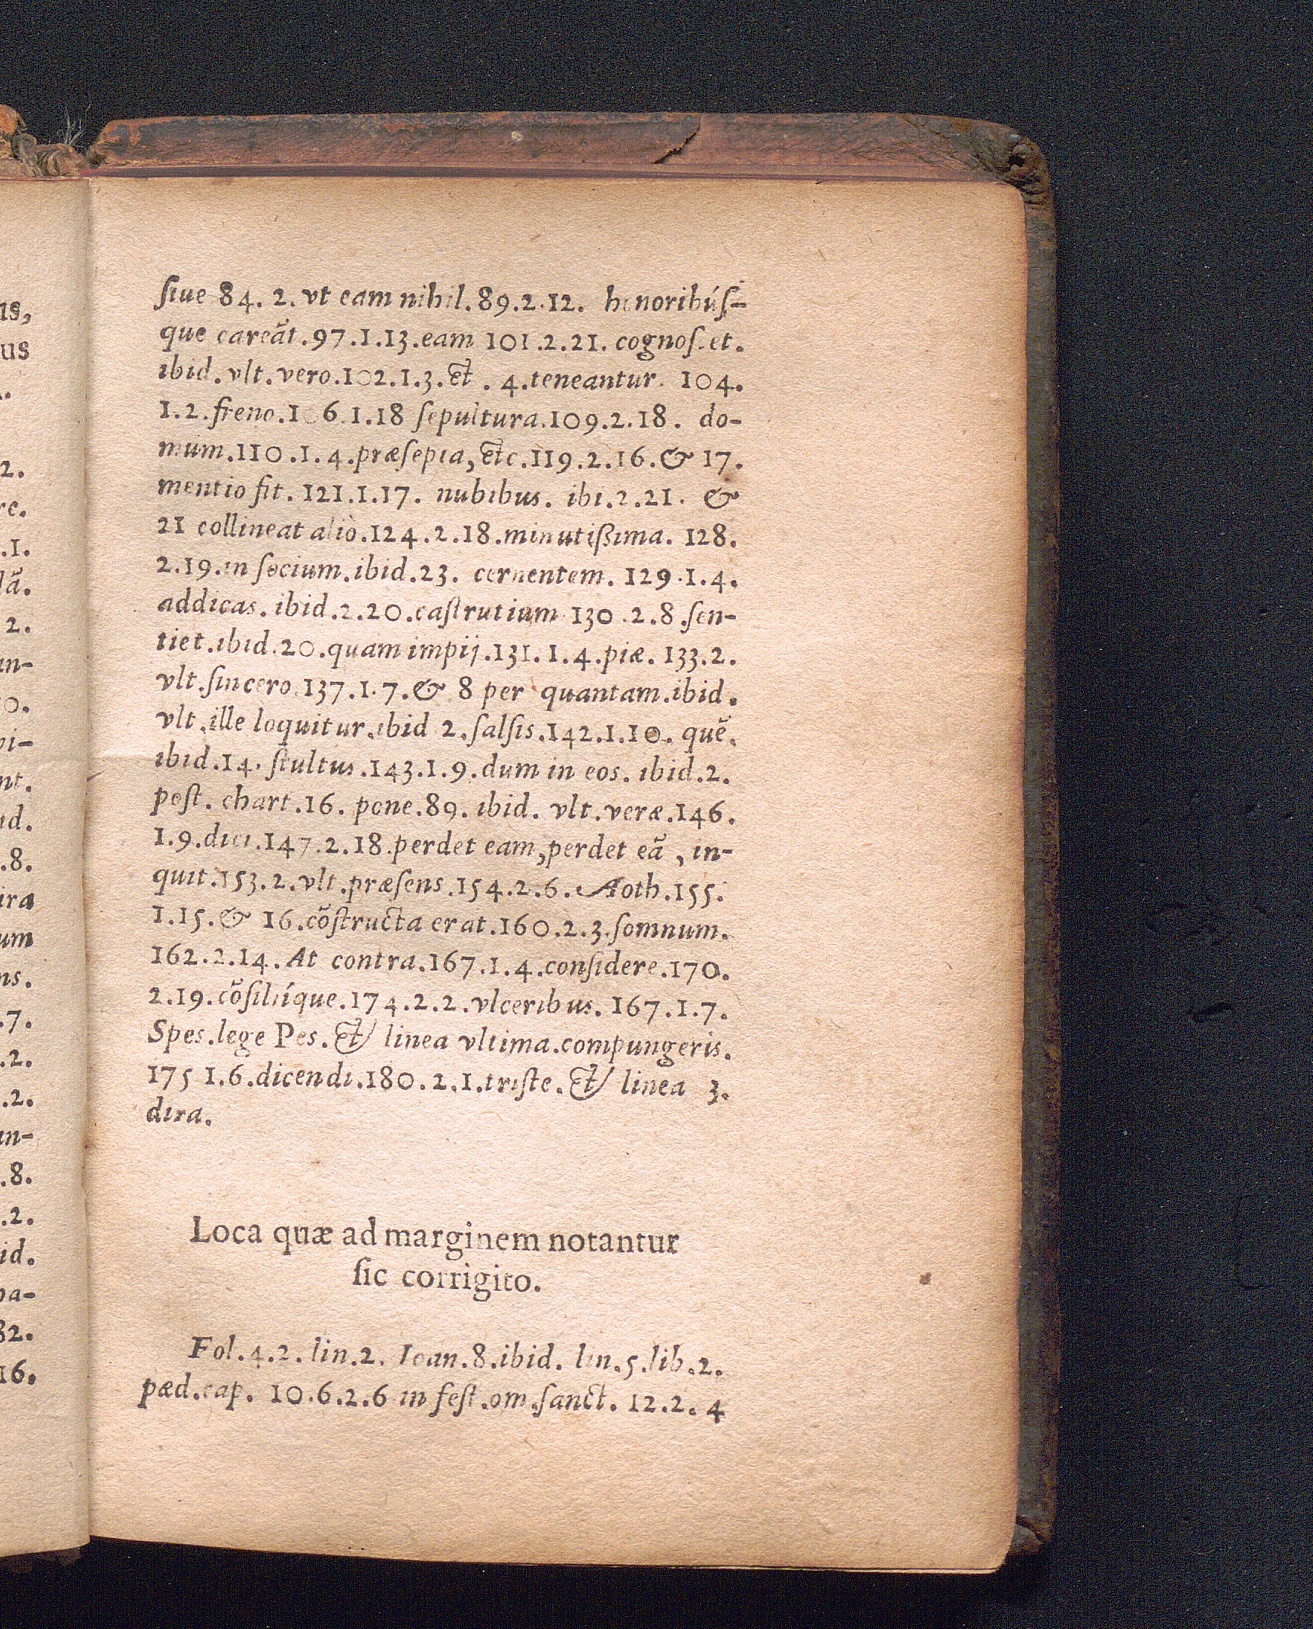 ſiue 84. 2. vt eam nihil. 89.2.12. honoribúſ-
que careāt.97.1.13.eam 101.2.21. cognoſcet.
ibid. vlt. vero.102.1.3.et . 4.teneantur. 104.
1.2.freno.106.1.18 ſepultura.109.2.18. do-
mum.110.1.4.præſepia, etc.119.2.16.& 17.
mentio fit. 121.1.17. nubibus. ibi.2.21. &
21 collineat aliò.124.2.18.minutißima. 128.
2.19.in ſocium.ibid.23. cernentem. 129.1.4.
addicas. ibid.2.20.caſtrutium 130.2.8.ſen-
tiet.ibid.20.quam impij.131.1.4.piæ. 133.2.
vlt.ſincero.137.1.7.& 8 per quantam.ibid.
vlt.ille loquitur.ibid 2.ſalſis.142.1.10. quē.
ibid.14. ſtultus.143.1.9.dum in eos. ibid.2.
poſt. chart.16. pone.89. ibid. vlt.veræ.146.
1.9.dici.147.2.18.perdet eam,perdet eā , in-
quit.153.2.vlt.præſens.154.2.6.Aoth.155.
1.15.& 16.cōſtructa erat.160.2.3.ſomnum.
162.2.14.At contra.167.1.4.conſidere.170.
2.19.cōſiliíque.174.2.2.vlceribus. 167.1.7.
Spes.lege Pes.et linea vltima.compungeris.
175 1.6.dicendi.180.2.1.triſte.et linea 3.
dira.
Loca quæ ad marginem notantur
ſic corrigito.
Fol.4.2. lin.2. Ioan.8.ibid. lin.5.lib.2.
pæd.cap. 10.6.2.6 in feſt.om.ſanct. 12.2. 4